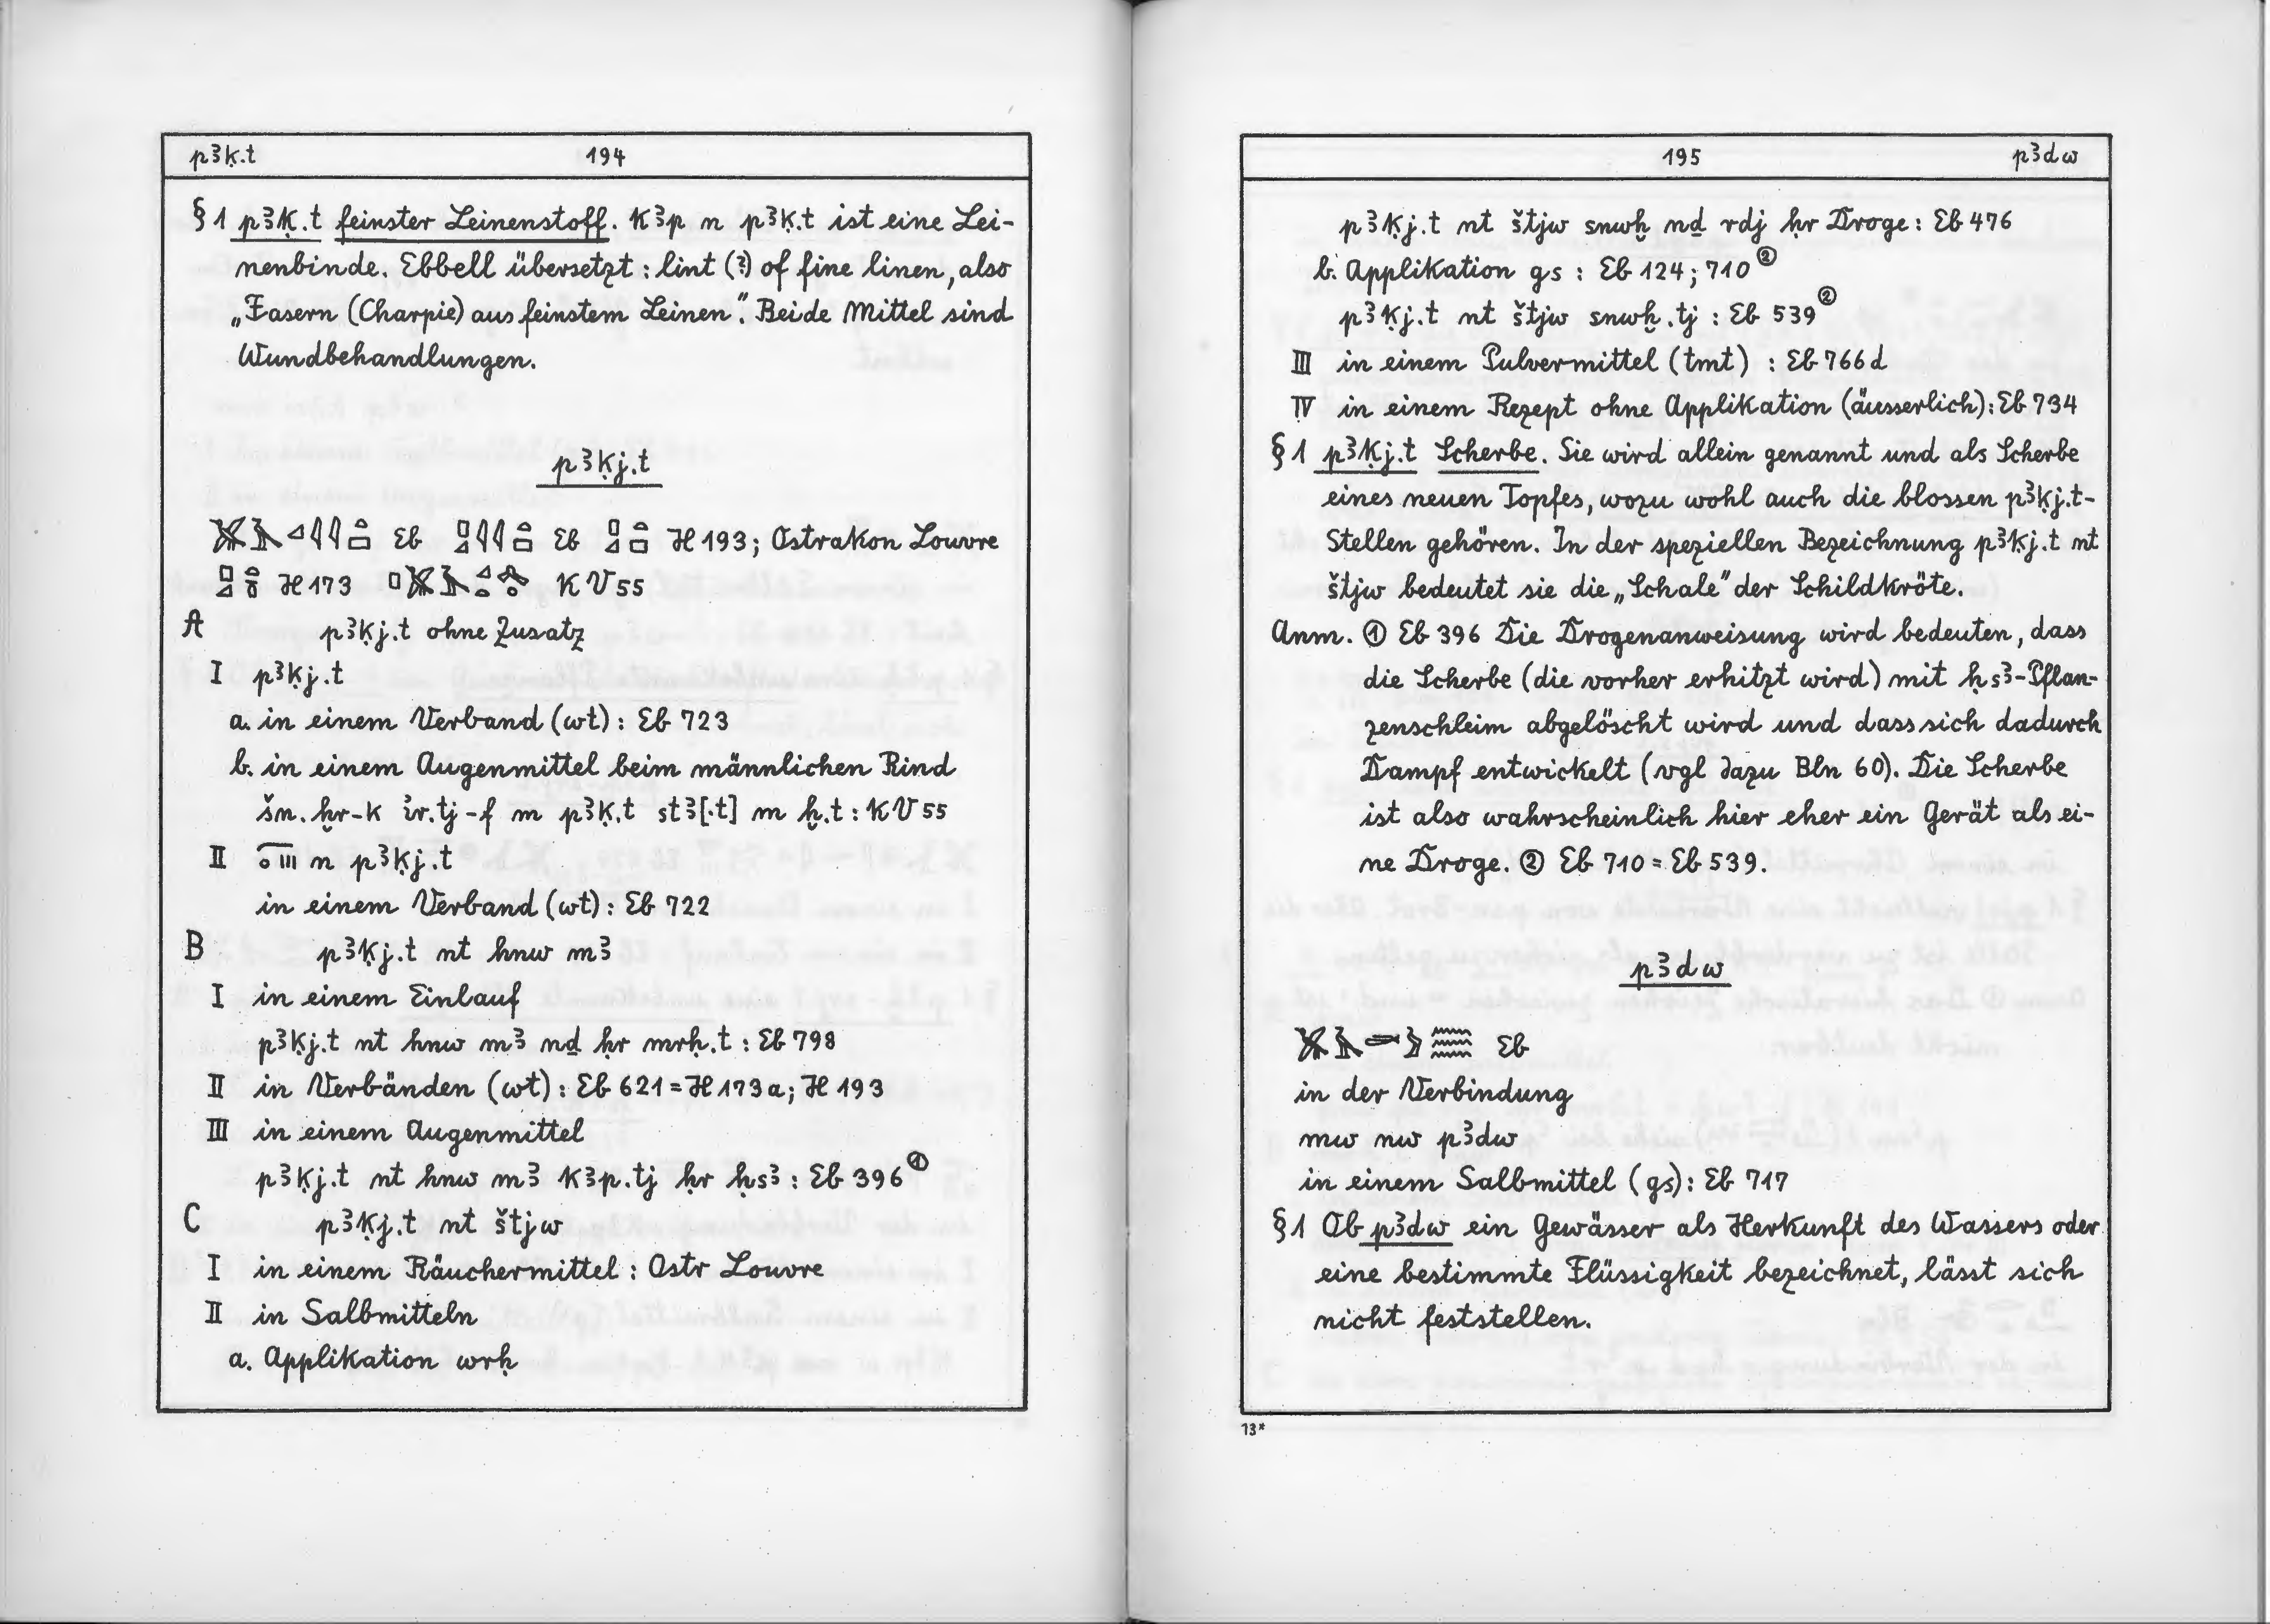 pꜣḳ.t 194
§ 1 pꜣḳ.t feinster Leinenstoff. kꜣp n pꜣḳ.t ist eine Lei-
nenbinde. Ebbell übersetzt: lint (?) of fine linen, also
„Fasern (Charpie) aus feinstem Leinen". Beide Mittel sind
Wundbehandlungen.
pꜣḳj.t
Eb Eb H 193; Ostrakon Louvre
H 173 KV 55
A pꜣḳj.t ohne Zusatz
I pꜣḳj.t
a. in einem Verband (wt): Eb 723
b. in einem Augenmittel beim männlichen Rind
šn.ḫr-k ỉr.tj-f m pꜣḳ.t stꜣ[.t] m ḫ.t: KV 55
II n pꜣḳj.t
in einem Verband (wt): Eb 722
B pꜣḳj.t nt hnw mꜣ
I in einem Einlauf
pꜣḳj.t nt hnw mꜣ nḏ ḥr mrḥ.t: Eb 798
II in Verbänden (wt): Eb 621 = H 173 a; H 193
III in einem Augenmittel
pꜣḳj.t nt hnw mꜣ kꜣp.tj ḥr ḥsꜣ: Eb 396 ①
C pꜣḳj.t nt štjw
I in einem Räuchermittel: Ostr Louvre
II in Salbmitteln
a. Applikation wrḥ
195 pꜣdw
pꜣḳj.t nt štjw snwḫ nḏ rdj ḥr Droge: Eb 476
b. Applikation gs: Eb 124; 710 ②
pꜣḳj.t nt štjw snwḫ.tj: Eb 539 ②
III in einem Pulvermittel (tmt): Eb 766 d
IV in einem Rezept ohne Applikation (äusserlich): Eb 734
§ 1 pꜣḳj.t Scherbe. Sie wird allein genannt und als Scherbe
eines neuen Topfes, wozu wohl auch die blossen pꜣḳj.t-
Stellen gehören. In der speziellen Bezeichnung pꜣḳj.t nt
štjw bedeutet sie die „Schale" der Schildkröte.
Anm. ① Eb 396 Die Drogenanweisung wird bedeuten, dass
die Scherbe (die vorher erhitzt wird) mit ḥsꜣ-Pflan-
zenschleim abgelöscht wird und dass sich dadurch
Dampf entwickelt (vgl dazu Bln 60). Die Scherbe
ist also wahrscheinlich hier eher ein Gerät als ei-
ne Droge. ② Eb 710 = Eb 539.
pꜣdw
Eb
in der Verbindung
mw nw pꜣdw
in einem Salbmittel (gs): Eb 717
§ 1 Ob pꜣdw ein Gewässer als Herkunft des Wassers oder
eine bestimmte Flüssigkeit bezeichnet, lässt sich
nicht feststellen.
13*